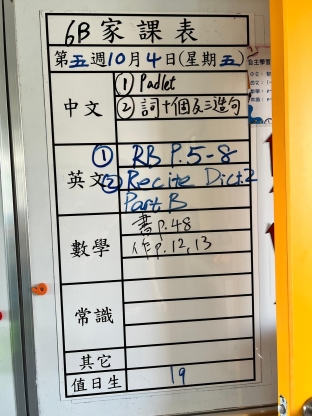 6B 家課表
第五週10月4日(星期五)
中文
① Padlet
② 詞十個及三造句
英文
① RB P.5-8
② Recite Dict.2
Part B
數學
書p.48
作p.12,13
常識
其它
值日生
19